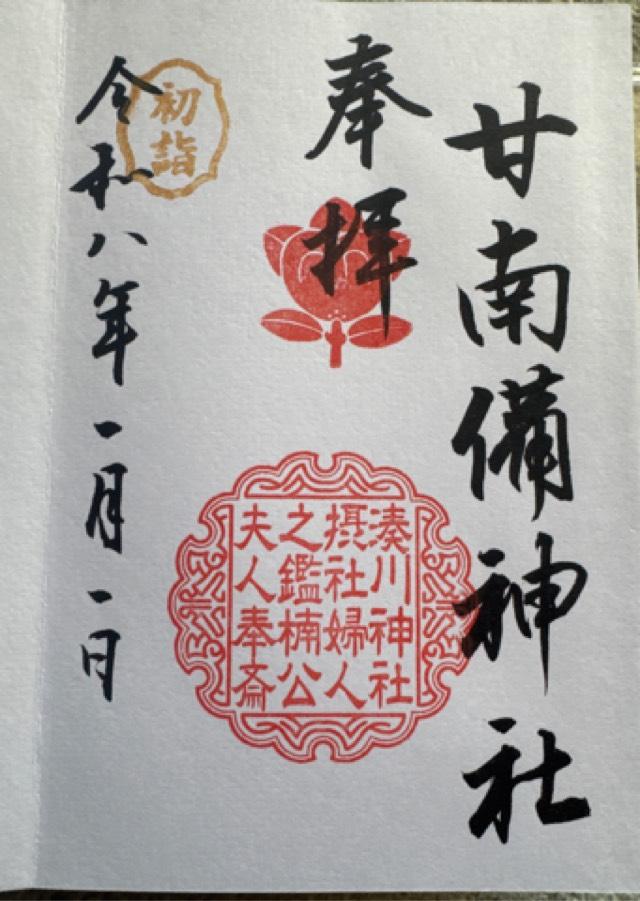 甘南備神社
奉拝
湊川神社
摂社婦人
之鑑楠公
夫人奉斎
初詣
令和八年一月一日